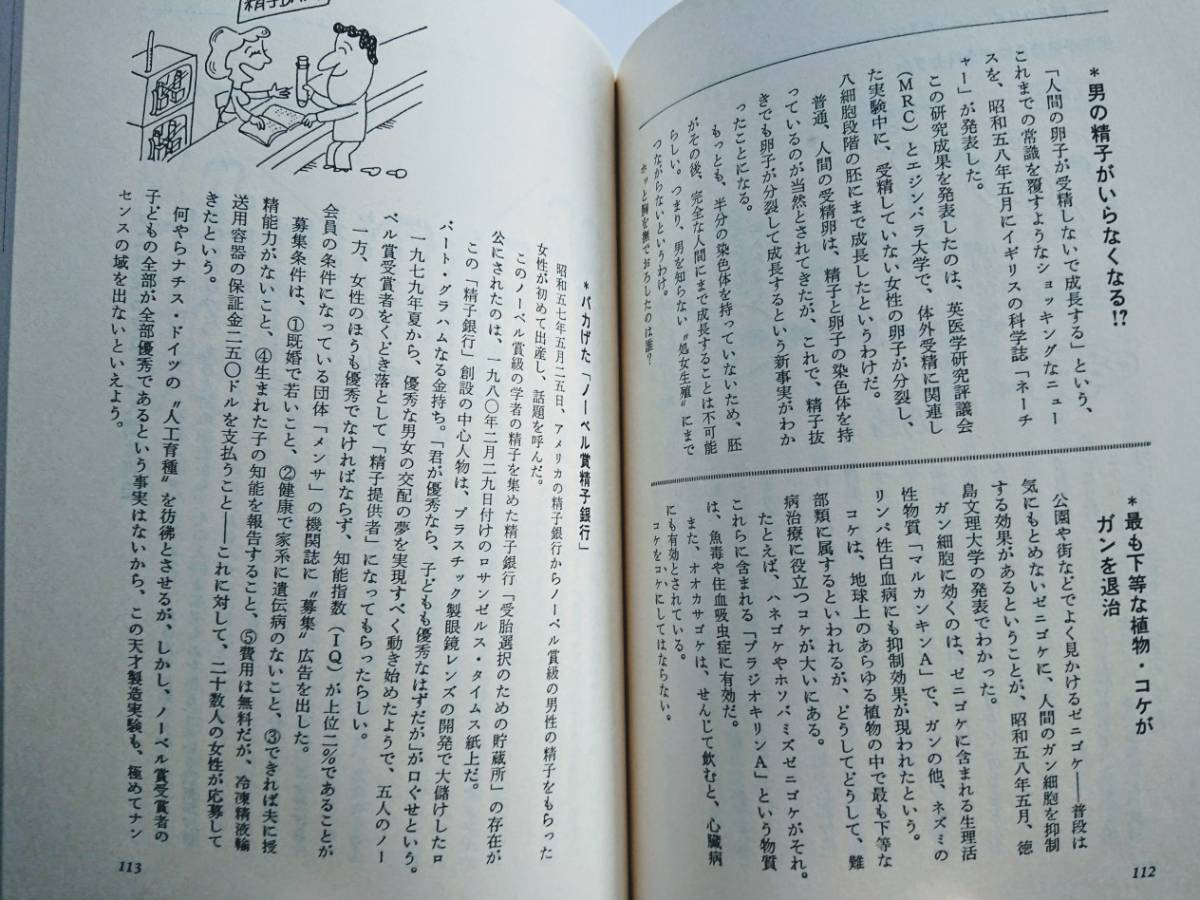 *男の精子がいらなくなる!?
「人間の卵子が受精しないで成長する」という、
これまでの常識を覆すようなショッキングなニュー
スを、昭和五八年五月にイギリスの科学誌「ネーチ
ャー」が発表した。
この研究成果を発表したのは、英医学研究評議会
(MRC)とエジンバラ大学で、体外受精に関連し
た実験中に、受精していない女性の卵子が分裂し、
八細胞段階の胚にまで成長したというわけだ。
普通、人間の受精卵は、精子と卵子の染色体を持
っているのが当然とされてきたが、これで、精子抜
きでも卵子が分裂して成長するという新事実がわか
ったことになる。
もっとも、半分の染色体を持っていないため、胚
がその後、完全な人間にまで成長することは不可能
らしい。つまり、男を知らない〝処女生殖〟にまで
つながらないというわけ。
ホッと胸を撫でおろしたのは誰?
*最も下等な植物・コケが
ガンを退治
公園や街などでよく見かけるゼニゴケ——普段は
気にもとめないゼニゴケに、人間のガン細胞を抑制
する効果があるということが、昭和五八年五月、徳
島文理大学の発表でわかった。
ガン細胞に効くのは、ゼニゴケに含まれる生理活
性物質「マルカンキンA」で、ガンの他、ネズミの
リンパ性白血病にも抑制効果が現われたという。
コケは、地球上のあらゆる植物の中で最も下等な
部類に属するといわれるが、どうしてどうして、難
病治療に役立つコケが大いにある。
たとえば、ハネゴケやホソバミズゼニゴケがそれ。
これらに含まれる「プラジオキリンA」という物質
は、魚毒や住血吸虫症に有効だ。
また、オオカサゴケは、せんじて飲むと、心臓病
にも有効とされている。
コケをコケにしてはならない。
112
精子BANK
*バカげた「ノーベル賞精子銀行」
昭和五七年五月二五日、アメリカの精子銀行からノーベル賞級の男性の精子をもらった
女性が初めて出産し、話題を呼んだ。
このノーベル賞級の学者の精子を集めた精子銀行「受胎選択のための貯蔵所」の存在が
公にされたのは、一九八〇年二月二九日付けのロサンゼルス・タイムス紙上だ。
この「精子銀行」創設の中心人物は、プラスチック製眼鏡レンズの開発で大儲けしたロ
バート・グラハムなる金持ち。「君が優秀なら、子どもも優秀なはずだが」がロぐせという。
一九七九年夏から、優秀な男女の交配の夢を実現すべく動き始めたようで、五人のノー
ベル賞受賞者をくどき落として「精子提供者」になってもらったらしい。
一方、女性のほうも優秀でなければならず、知能指数(IQ)が上位二%であることが
会員の条件になっている団体「メンサ」の機関誌に〝募集〟広告を出した。
募集条件は、①既婚で若いこと、②健康で家系に遺伝病のないこと、③できれば夫に授
精能力がないこと、④生まれた子の知能を報告すること、⑤費用は無料だが、冷凍精液輸
送用容器の保証金二五〇ドルを支払うこと——これに対して、二十数人の女性が応募して
きたという。
何やらナチス・ドイツの〝人工育種〟を彷彿とさせるが、しかし、ノーベル賞受賞者の
子どもの全部が全部優秀であるという事実はないから、この天才製造実験も、極めてナン
センスの域を出ないといえよう。
113